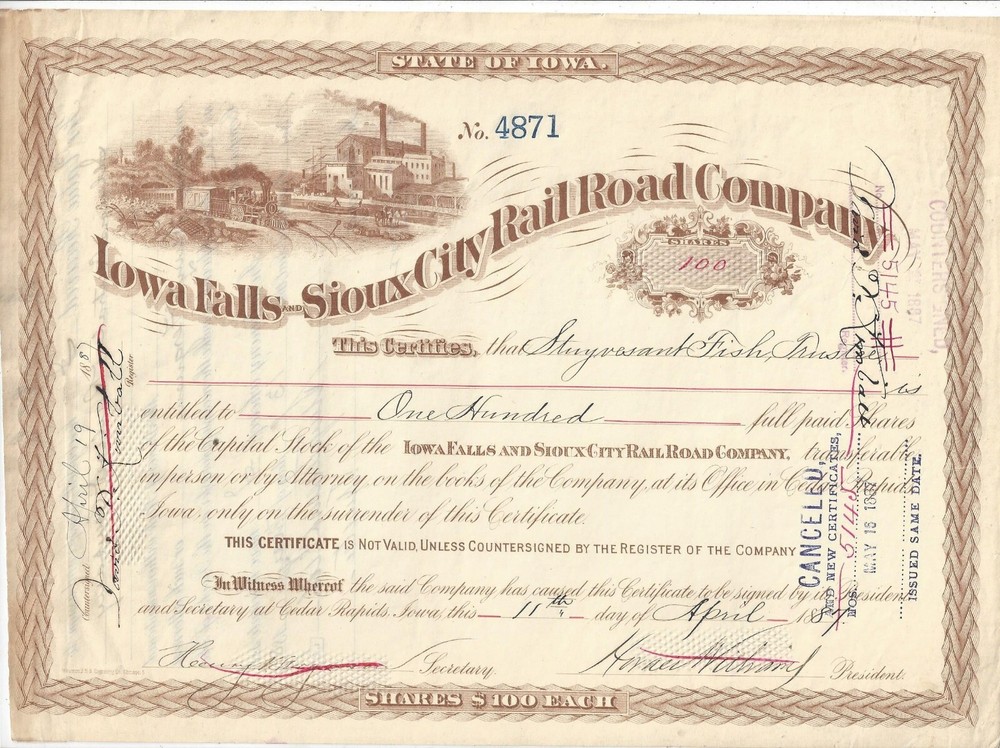 STATE OF IOWA.
No. 4871
IOWA FALLS AND SIOUX CITY RAIL ROAD COMPANY
SHARES
100
This Certifies, that Stuyvesant Fish, Trustee
is
entitled to One Hundred full paid Shares
of the Capital Stock of the IOWA FALLS AND SIOUX CITY RAIL ROAD COMPANY, transferable
in person or by Attorney, on the books of the Company, at its Office, in Cedar Rapids
Iowa, only on the surrender of this Certificate.
THIS CERTIFICATE IS NOT VALID, UNLESS COUNTERSIGNED BY THE REGISTER OF THE COMPANY
In Witness Whereof the said Company has caused this Certificate to be signed by its President
and Secretary at Cedar Rapids, Iowa, this 11th day of April 1887
Secretary.
Horace Williams
President.
SHARES $100 EACH
Countersigned April 19 1887
Register
CANCELED,
AND NEW CERTIFICATES,
NOS. 5145
MAY 16 1887
ISSUED SAME DATE.
No. 5145
COUNTERSIGNED,
MAY 1887